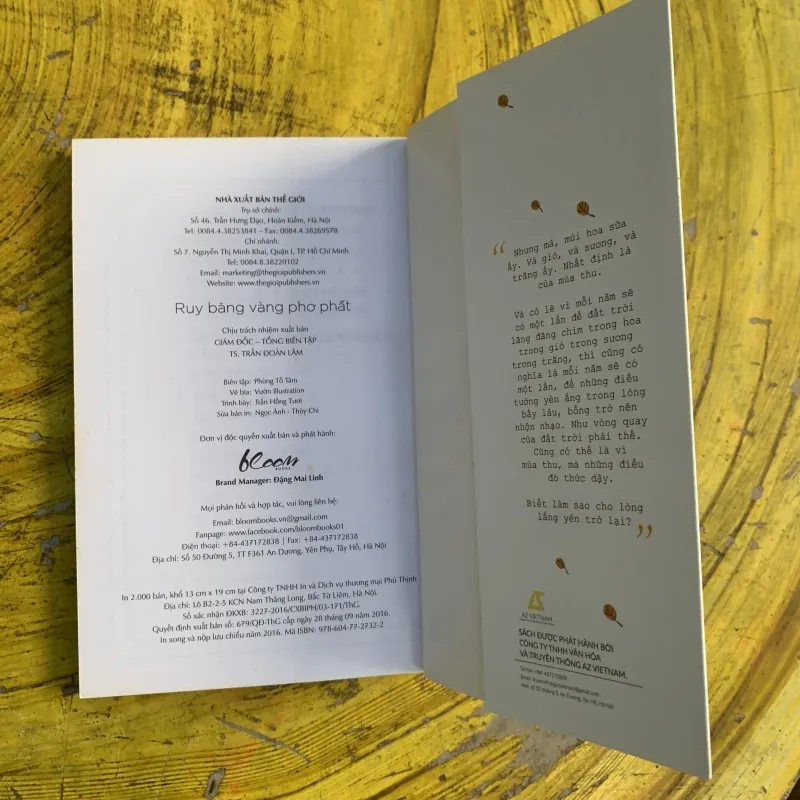 NHÀ XUẤT BẢN THẾ GIỚI
Trụ sở chính:
Số 46. Trần Hưng Đạo, Hoàn Kiếm, Hà Nội
Tel: 0084.4.38253841 – Fax: 0084.4.38269578
Chi nhánh:
Số 7. Nguyễn Thị Minh Khai, Quận I, TP. Hồ Chí Minh
Tel: 0084.8.38220102
Email: marketing@thegioipublishers.vn
Website: www.thegioipublishers.vn
Ruy băng vàng phơ phất
Chịu trách nhiệm xuất bản
GIÁM ĐỐC – TỔNG BIÊN TẬP
TS. TRẦN ĐOÀN LÂM
Biên tập: Phùng Tố Tâm
Vẽ bìa: Vườn Illustration
Trình bày: Trần Hồng Tươi
Sửa bản in: Ngọc Ánh - Thùy Chi
Đơn vị độc quyền xuất bản và phát hành:
bloom
BOOKS
Brand Manager: Đặng Mai Linh
Mọi phản hồi và hợp tác, vui lòng liên hệ:
Email: bloombooks.vn@gmail.com
Fanpage: www.facebook.com/bloombooks01
Điện thoại: +84-437172838 | Fax: +84-437172838
Địa chỉ: Số 50 Đường 5, TT F361 An Dương, Yên Phụ, Tây Hồ, Hà Nội
In 2.000 bản, khổ 13 cm x 19 cm tại Công ty TNHH In và Dịch vụ thương mại Phú Thịnh
Địa chỉ: Lô B2-2-5 KCN Nam Thăng Long, Bắc Từ Liêm, Hà Nội.
Số xác nhận ĐKXB: 3227-2016/CXBIPH/03-171/ThG.
Quyết định xuất bản số: 679/QĐ-ThG cấp ngày 28 tháng 09 năm 2016.
In xong và nộp lưu chiểu năm 2016. Mã ISBN: 978-604-77-2732-2
“ Nhưng mà, mùi hoa sữa
ấy. Và gió, và sương, và
trăng ấy. Nhất định là
của mùa thu.
Và có lẽ vì mỗi năm sẽ
có một lần để đất trời
lãng đãng chìm trong hoa
trong gió trong sương
trong trăng, thì cũng có
nghĩa là mỗi năm sẽ có
một lần, để những điều
tưởng yên ắng trong lòng
bấy lâu, bỗng trở nên
nhộn nhạo. Như vòng quay
của đất trời phải thế.
Cũng có thể là vì
mùa thu, mà những điều
đó thức dậy.
Biết làm sao cho lòng
lắng yên trở lại? ”
AZ VIETNAM
SÁCH ĐƯỢC PHÁT HÀNH BỞI
CÔNG TY TNHH VĂN HÓA
VÀ TRUYỀN THÔNG AZ VIETNAM.